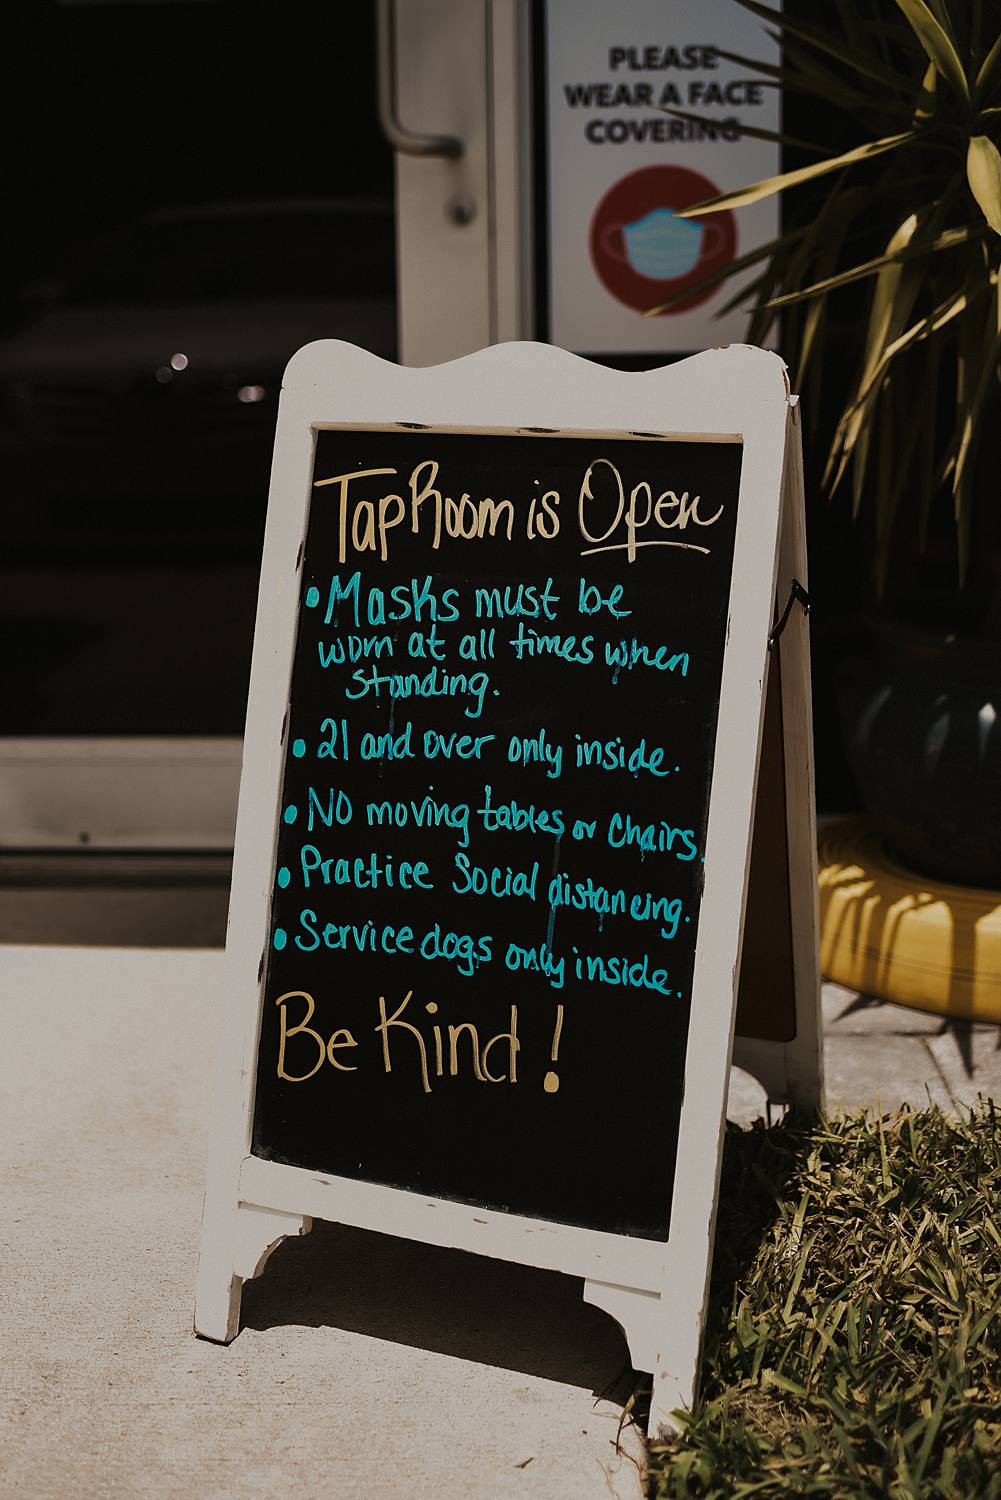 PLEASE
WEAR A FACE
COVERING
TapRoom is Open
• Masks must be
worn at all times when
standing.
• 21 and over only inside.
• NO moving tables or Chairs.
• Practice Social distancing.
• Service dogs only inside.
Be Kind!